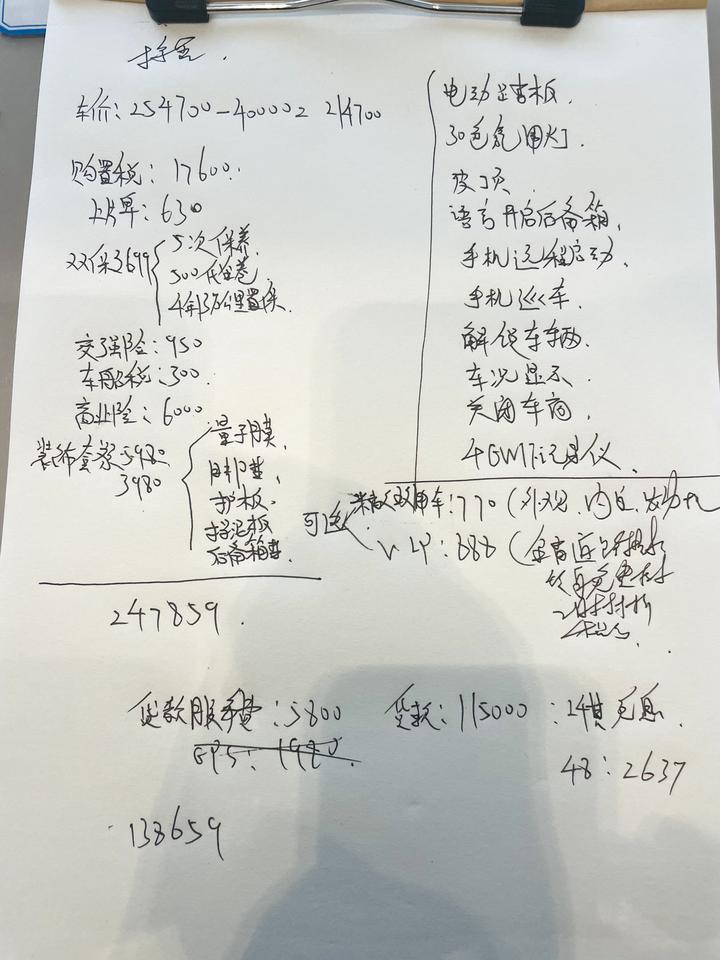 车价：254700-40000= 214700
购置税：17600.
上牌：630
双保3699
5次保养.
500代金卷
4年13万公里置换.
交强险：950
车船税：300.
商业险：6000
装饰套餐5980
3980
量子膜.
脚垫.
护板.
挡泥板
后备箱垫.
247859.
电动踏板.
30色氛围灯.
皮顶
语言开启后备箱.
手机远程启动.
手机巡车.
解锁车辆.
车况显示
关闭车窗.
4G 记录仪.
可选
用车：770（外观、内饰、发动机
VIP：888（
贷款服务费：5800
GPS：1980.
贷款：115000：24期免息.
48：2637
138659